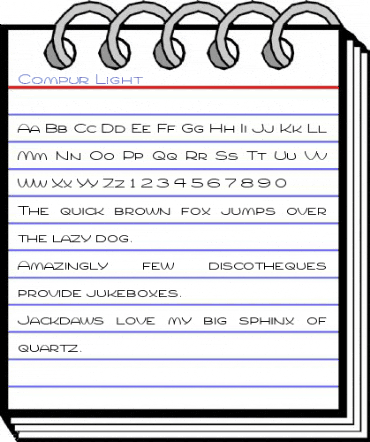 Compur Light
Aa Bb Cc Dd Ee Ff Gg Hh Ii Jj Kk Ll
Mm Nn Oo Pp Qq Rr Ss Tt Uu Vv
Ww Xx Yy Zz 1 2 3 4 5 6 7 8 9 0
The quick brown fox jumps over
the lazy dog.
Amazingly few discotheques
provide jukeboxes.
Jackdaws love my big sphinx of
quartz.